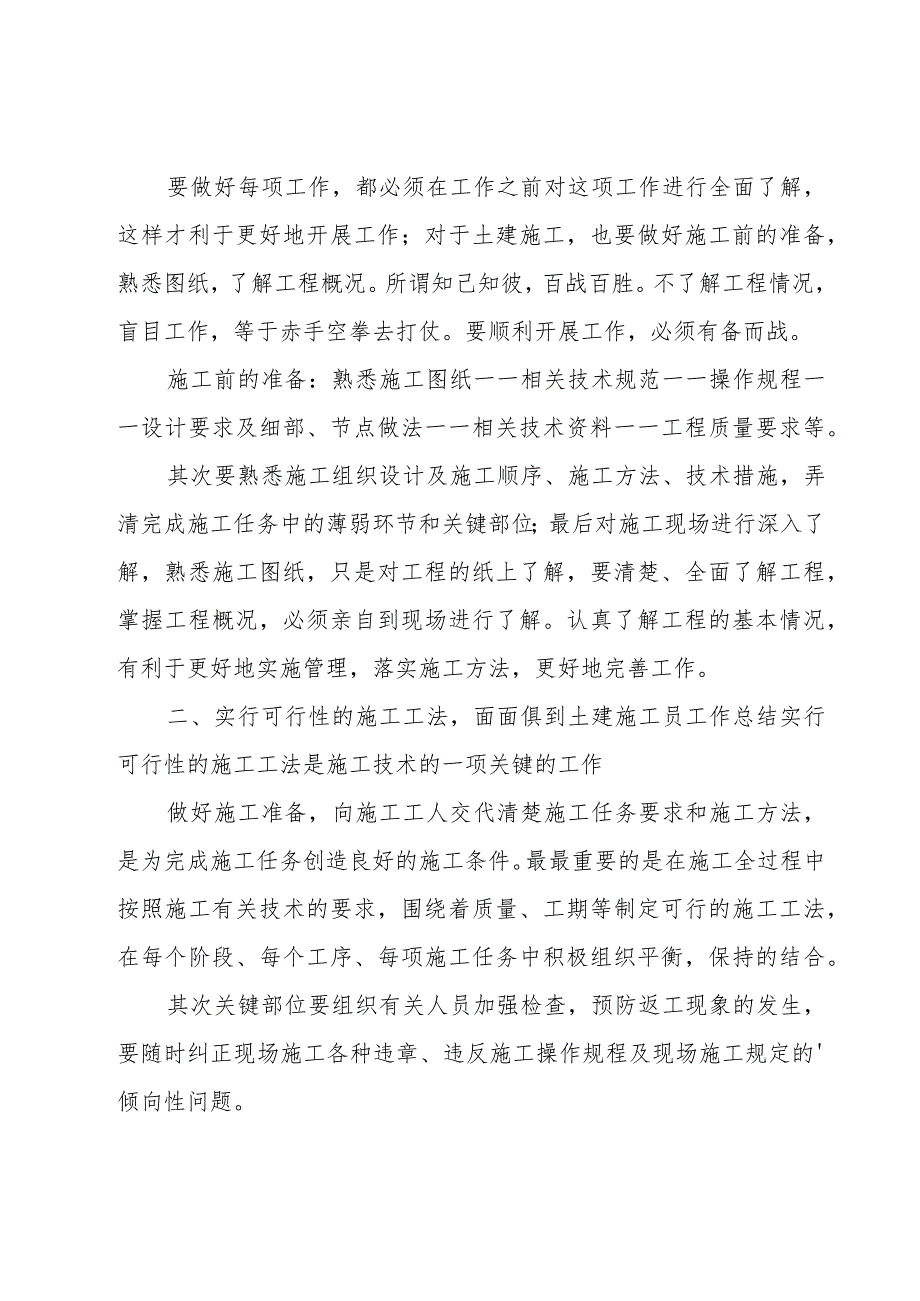 要做好每项工作，都必须在工作之前对这项工作进行全面了解，
这样才利于更好地开展工作；对于土建施工，也要做好施工前的准备，
熟悉图纸，了解工程概况。所谓知己知彼，百战百胜。不了解工程情况，
盲目工作，等于赤手空拳去打仗。要顺利开展工作，必须有备而战。
施工前的准备：熟悉施工图纸一一相关技术规范一一操作规程一
一设计要求及细部、节点做法一一相关技术资料一一工程质量要求等。
其次要熟悉施工组织设计及施工顺序、施工方法、技术措施，弄
清完成施工任务中的薄弱环节和关键部位；最后对施工现场进行深入了
解，熟悉施工图纸，只是对工程的纸上了解，要清楚、全面了解工程，
掌握工程概况，必须亲自到现场进行了解。认真了解工程的基本情况，
有利于更好地实施管理，落实施工方法，更好地完善工作。
二、实行可行性的施工工法，面面俱到土建施工员工作总结实行
可行性的施工工法是施工技术的一项关键的工作
做好施工准备，向施工工人交代清楚施工任务要求和施工方法，
是为完成施工任务创造良好的施工条件。最最重要的是在施工全过程中
按照施工有关技术的要求，围绕着质量、工期等制定可行的施工工法，
在每个阶段、每个工序、每项施工任务中积极组织平衡，保持的结合。
其次关键部位要组织有关人员加强检查，预防返工现象的发生，
要随时纠正现场施工各种违章、违反施工操作规程及现场施工规定的'
倾向性问题。